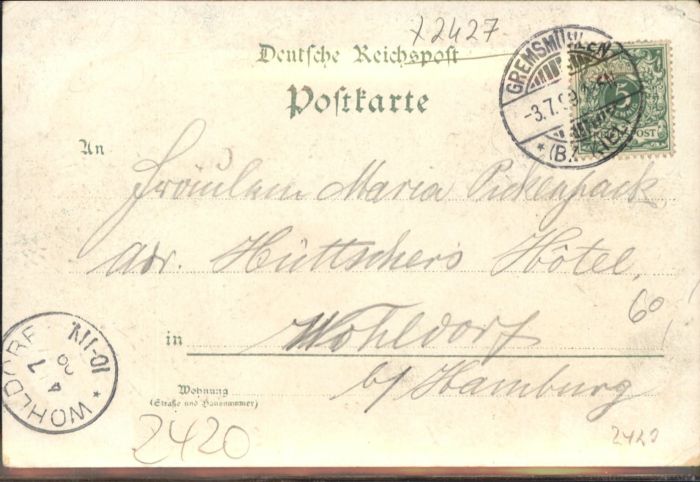 x2427
Deutsche Reichspost
Postkarte
GREMSMÜHLEN
-3.7.99
* (BZ. KIEL)
5
An
Fräulein Maria Pickenpack
adr. Hüttschers Hôtel,
60
in Wohldorf
b/ Hamburg
Wohnung
(Straße und Hausnummer)
* WOHLDORF
4 7
10-11V.
2420
2420